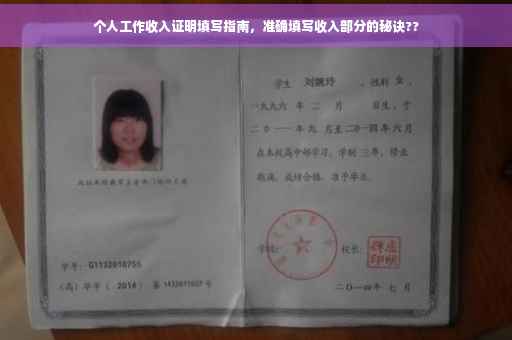 个人工作收入证明填写指南，准确填写收入部分的秘诀??
学生 刘婉玲 ，性别 女 ，
一九九六 年 二 月 日生，于
二〇一一年九 月至二〇一四年六月
在本校高中部学习，学制 三年，修业
期满，成绩合格，准予毕业。
学校： 校长：
二〇一四年 七 月
学号： G1132010755
(高) 毕字 ( 2014 ) 第 1432011607 号